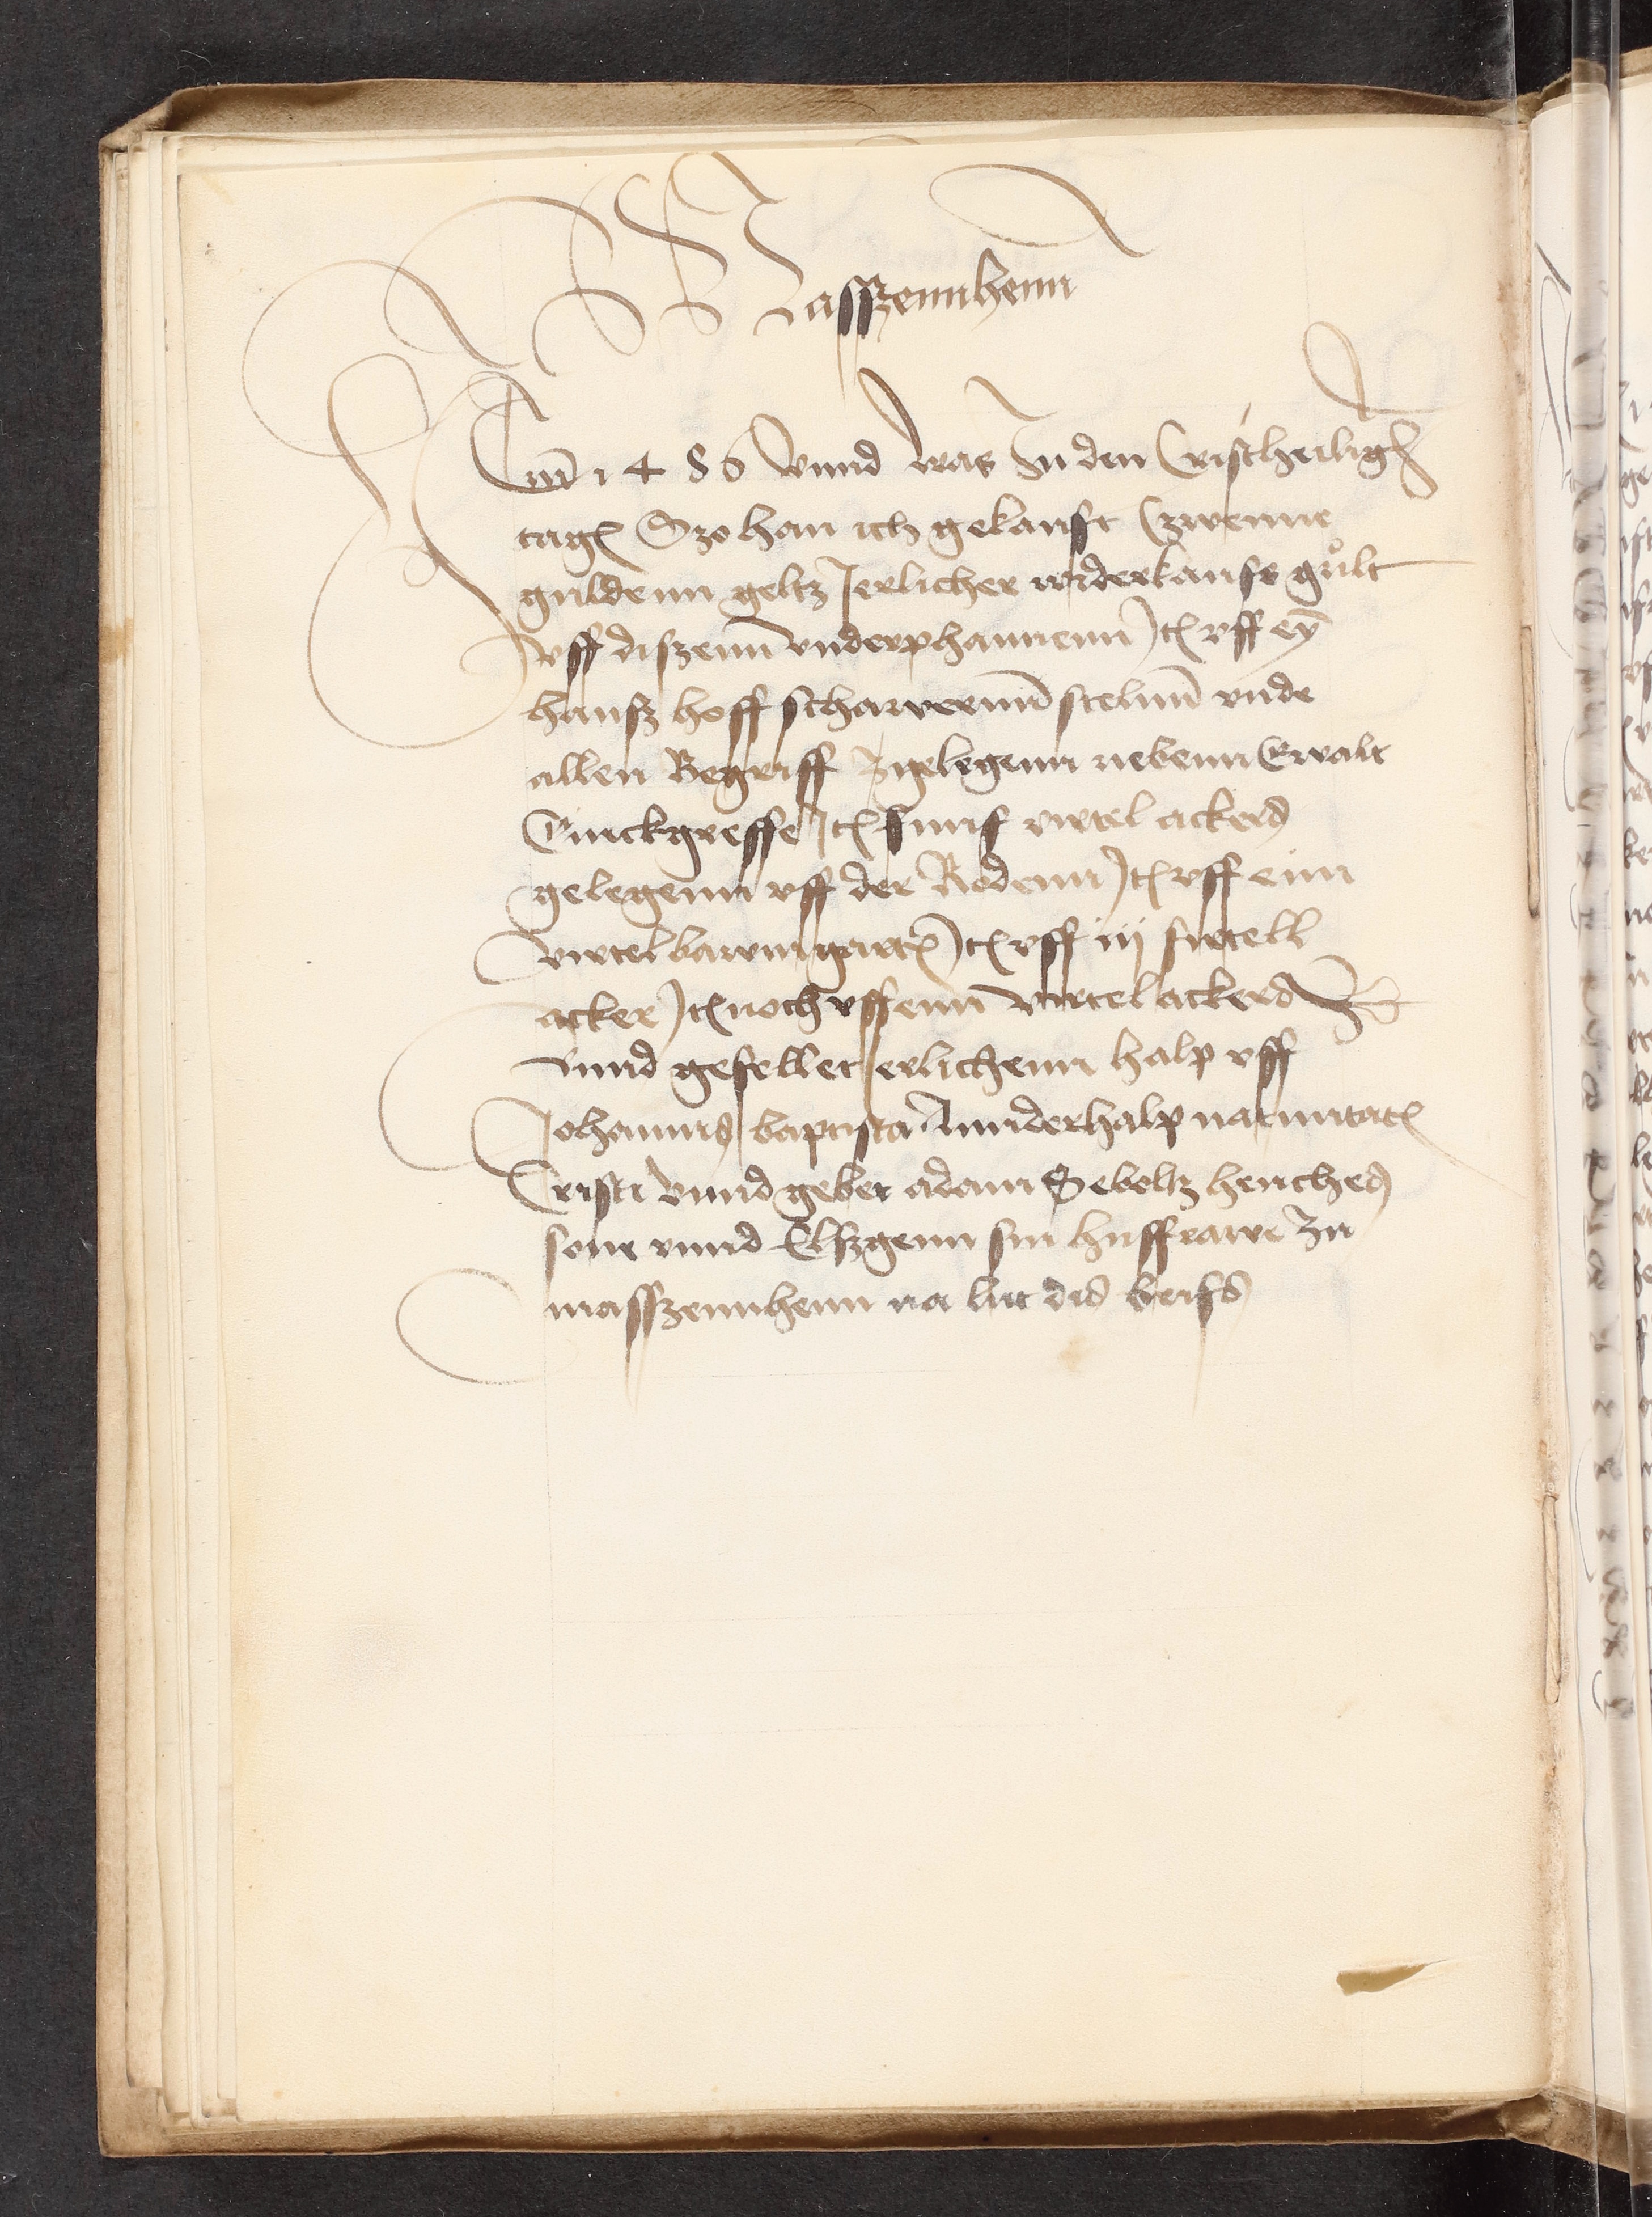 Masszennhenn
Anno 1486 vnnd was In den Cristheiligen
tagen Szo han ich gekauft Czwenne
guldenn geltz Jerlicher widerkaufs gůlt
vff diszenn vnderphannenn Jtem vff ey̅
hausz hoff scharvernn̅ stelnn̅ vnde
allen Begriff Jngelegenn nebenn Ewalt
Jtem funf virtel ackers
gelegenn vff der Rodenn Jtem vff einn
virtel bawmgarten Jtem vff iij firtell
acker Jtem noch vff enn virtel ackers
vnnd gefellet Jerlichenn halp vff
Johannis baptista Annderhalp natiuitatis
Cristi vnnd geber adam Seboltz henches
sone vnnd Elszgenn sin husfrawe zu
masszennhenn na lut des briefs